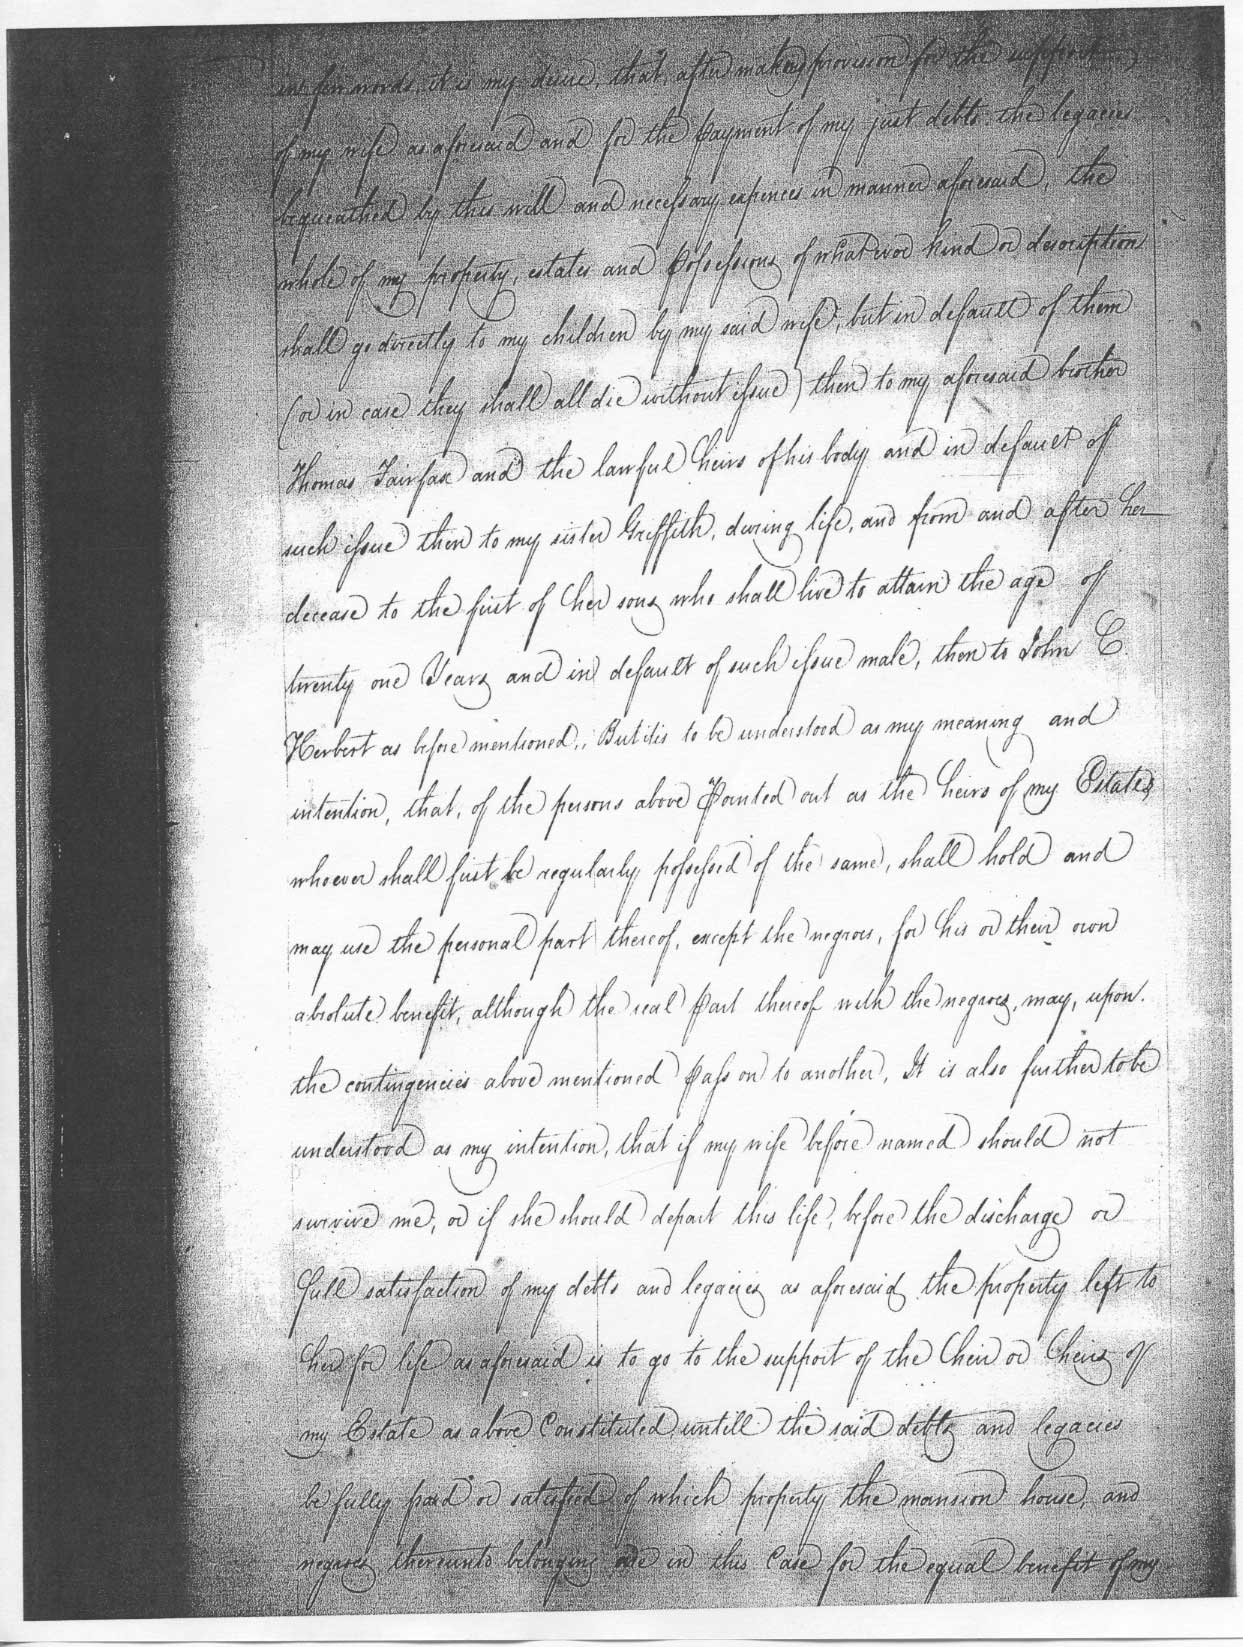 in few words, it is my desire, that, after making provision for the support
of my wife as aforesaid and for the payment of my just debts, the legacies
bequeathed by this will and necessary expences in manner aforesaid, the
whole of my property, estates and Possessions of whatever kind or description
shall go directly to my children by my said wife, but in default of them
(or in case they shall all die without issue) then to my aforesaid brother
Thomas Fairfax and the lawful heirs of his body and in default of
such issue then to my sister Griffith, during life, and from and after her
decease to the first of her sons who shall live to attain the age of
twenty one Years and in default of such issue male, then to John C.
Herbert as before mentioned. But it is to be understood as my meaning and
intention, that, of the persons above Pointed out as the heirs of my Estates,
whoever shall first be regularly possessed of the same, shall hold and
may use the personal part thereof, except the negroes, for his or their own
absolute benefit, although the real Part thereof with the negroes, may, upon
the contingencies above mentioned Pass on to another, It is also further to be
understood as my intention, that if my wife before named should not
survive me, or if she should depart this life, before the discharge or
full satisfaction of my debts and legacies as aforesaid the property left to
her for life as aforesaid is to go to the support of the heir or heirs of
my Estate as above Constituted untill the said debts and legacies
be fully paid or satisfied of which property the mansion house, and
negroes thereunto belonging are in this Case for the equal benefit of my